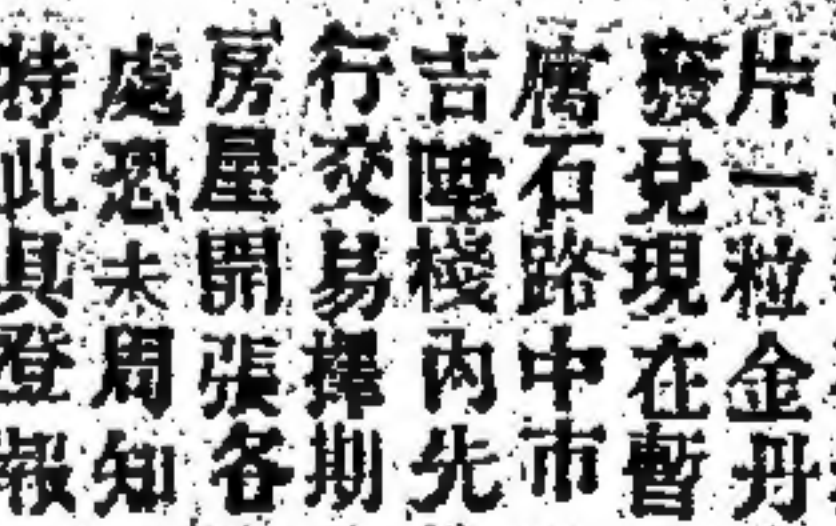 片一粒金丹
發兌現在暫
庽石路中市
吉陞棧內先
行交易擇期
房屋開張各
處恐未周知
特此具登報